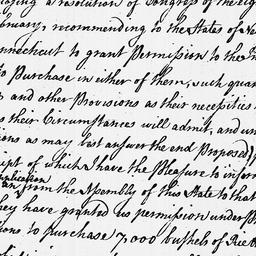 a resolution of Congress of the
recommending to the States of
nnecticut to grant Permission to the
to Purchase in either of them, such
and other Provisions as their necessities
their Circumstances will admit, and
ions as may best answer the end Proposed
of which I have the Pleasure to inform
from the Assembly of this State to that
they have granted us permission under
ions to purchase 7,000 bushels of